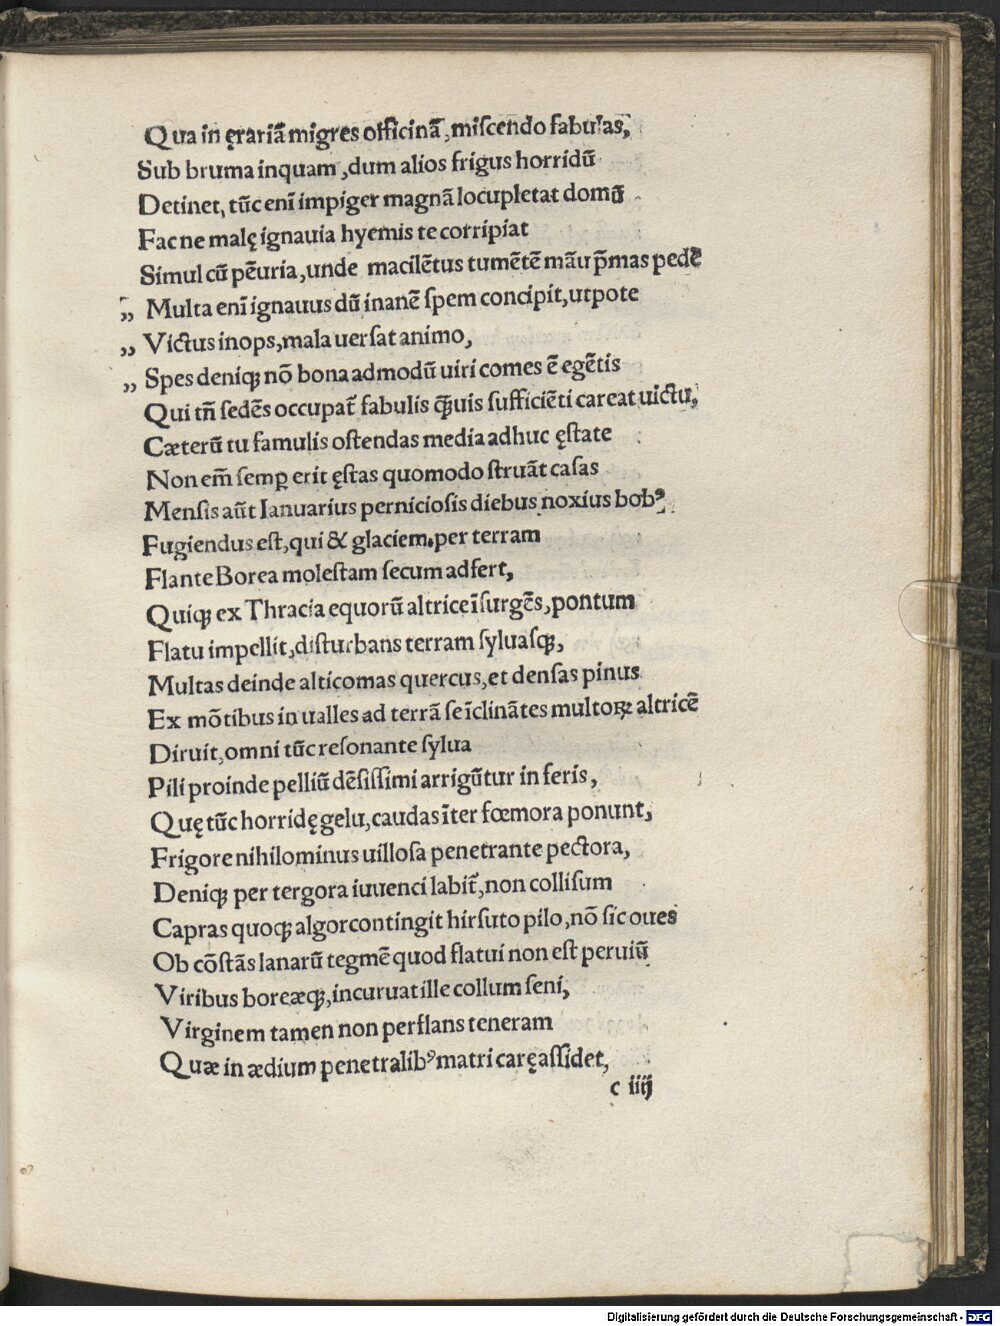 Qua in ęrariā migres officinā, miſcendo fabulas,
Sub bruma inquam, dum alios frigus horridū
Detinet, tūc enī impiger magnā locupletat domū
Fac ne malę ignauia hyemis te corripiat
Simul cū pēuria, unde macilētus tumētē māu p̄mas pedē
„ Multa enī ignauus dū inanē ſpem concipit, utpote
„ Victus inops, mala uerſat animo,
„ Spes deniqꝫ nō bona admodū uiri comes ē egētis
Qui tn̄ ſedēs occupat̄ fabulis q̄uis ſufficiēti careat uictu,
Cæterū tu famulis oſtendas media adhuc ęſtate
Non em̄ ſemꝑ erit ęſtas quomodo ſtruāt caſas
Menſis aūt Ianuarius pernicioſis diebus noxius bobꝰ
Fugiendus eſt, qui & glaciem, per terram
Flante Borea moleſtam ſecum adfert,
Quiqꝫ ex Thracia equorū altrice īſurgēs, pontum
Flatu impellit, diſturbans terram ſyluaſqꝫ,
Multas deinde alticomas quercus, et denſas pinus
Ex mōtibus in ualles ad terrā ſe īclinātes multoꝝ altricē
Diruit, omni tūc reſonante ſylua
Pili proinde pelliū dēſiſſimi arrigūtur in feris,
Quę tūc horridę gelu, caudas īter fœmora ponunt,
Frigore nihilominus uilloſa penetrante pectora,
Deniqꝫ per tergora iuuenci labit̄, non colliſum
Capras quoqꝫ algor contingit hirſuto pilo, nō ſic oues
Ob cōſtās lanarū tegmē quod flatui non eſt peruiū
Viribus boreæqꝫ, incuruat ille collum ſeni,
Virginem tamen non perflans teneram
Quæ in ædium penetralibꝰ matri carę aſſidet,
c iiij
Digitalisierung gefördert durch die Deutsche Forschungsgemeinschaft - DFG